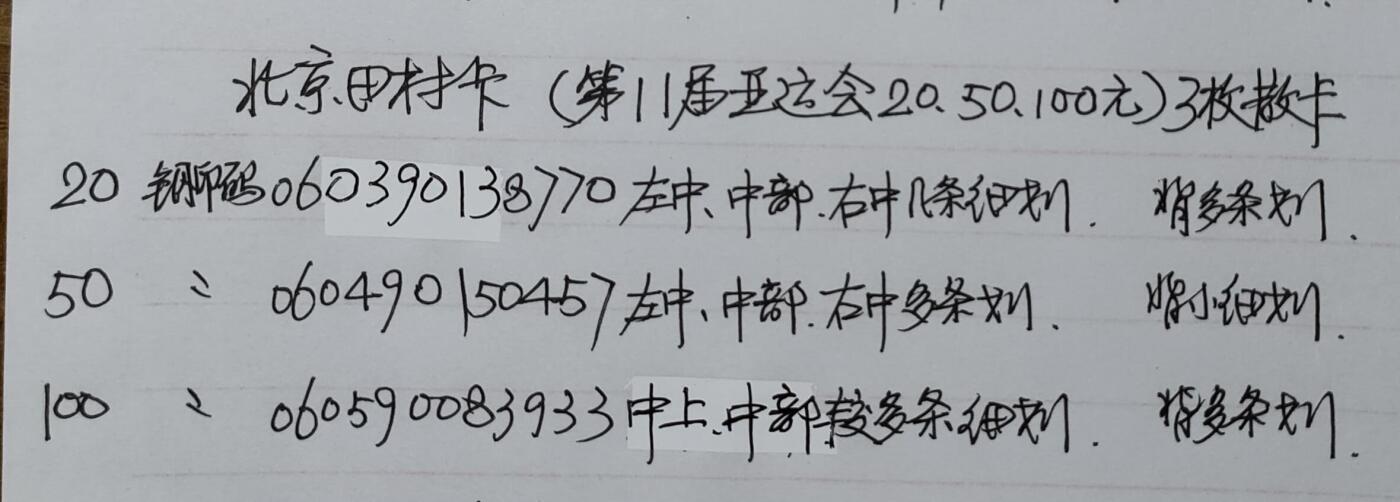 北京田村卡（第11届亚运会20.50.100元）3枚散卡
20 钢印码060390138770左中、中部.右中几条细划. 背多条划.
50 〃 060490150457左中、中部.右中多条划. 背小细划.
100 〃 060590083933中上.中部较多条细划. 背多条划.